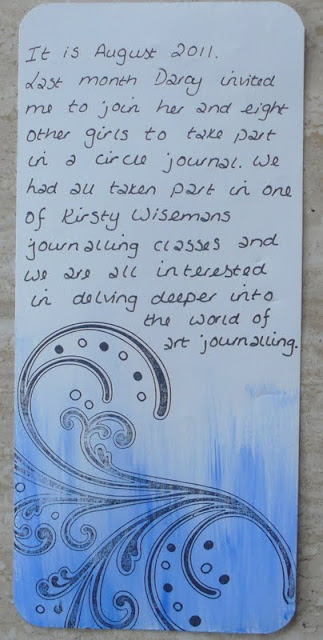 It is August 2011.
Last month Darcy invited
me to join her and eight
other girls to take part
in a circle journal. We
had all taken part in one
of Kirsty Wisemans
journalling classes and
we are all interested
in delving deeper into
the world of
art journalling.